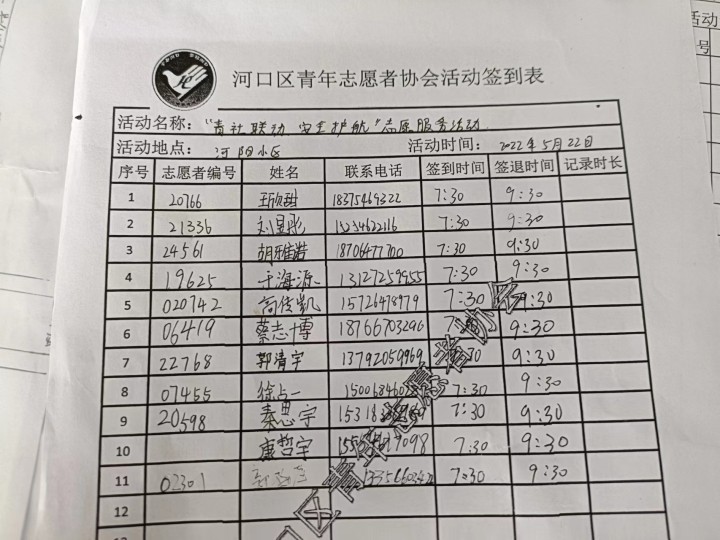 河口区青年志愿者协会活动签到表
活动名称：“青社联动 安全护航”志愿服务活动
活动地点： 河阳小区 活动时间： 2022年5月22日
序号 志愿者编号 姓名 联系电话 签到时间 签退时间 记录时长
1 20766 王欣甜 18375469322 7:30 9:30
2 21336 刘昱彤 15234622116 7:30 9:30
3 24561 胡雅诺 18706477700 7:30 9:30
4 19625 于海源 13127259955 7:30 9:30
5 020742 高传凯 15726478979 7:30 9:30
6 06419 蔡志博 18766703296 9:30
7 22768 郭清宇 13792059969 7:30 9:30
8 07455 徐占一 7:30 9:30
9 20598 秦思宇 7:30 9:30
10 康哲宇 7:30 9:30
11 02301 7:30 9:30
12
活动
号